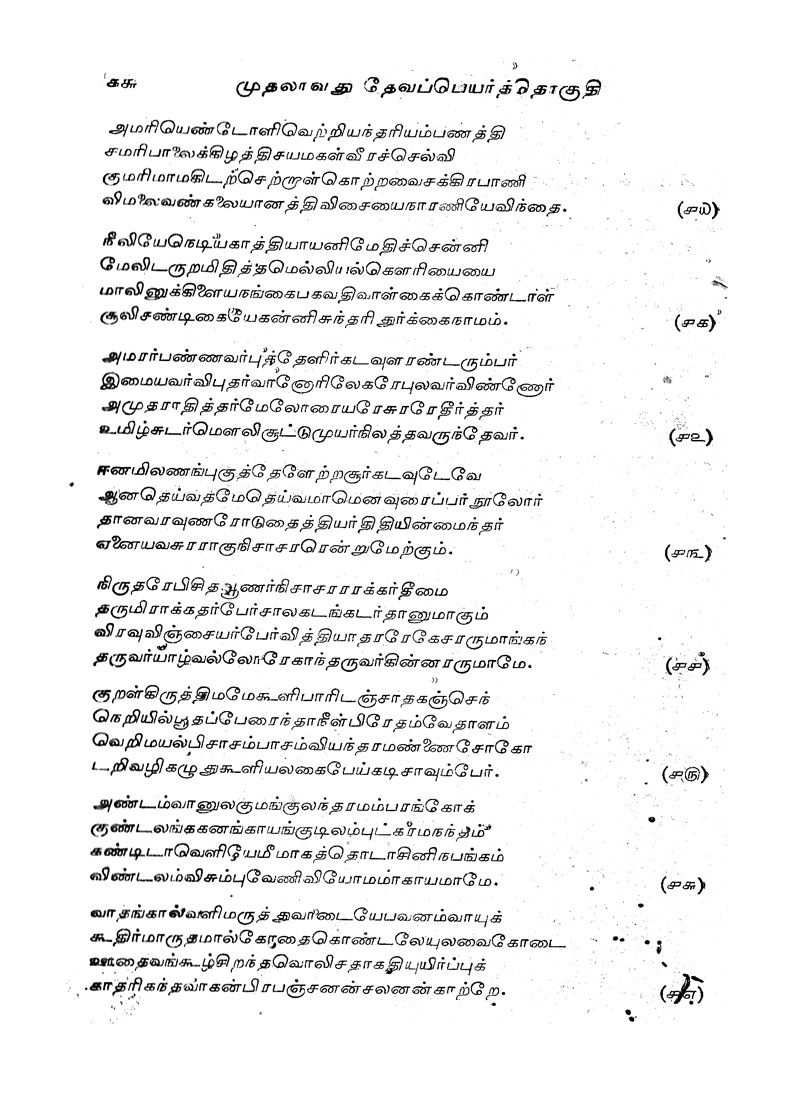 ௧௬ முதலாவது தேவப்பெயர்த்தொகுதி
அமரியெண்டோளிவெற்றியந்தரியம்பணத்தி
சமரிபாலைக்கிழத்திசயமகள்வீரச்செல்வி
குமரிமாமகிடற்செற்றாள்கொற்றவைசக்கிரபாணி
விமலைவண்கலையானத்திவிசையைநாரணியேவிந்தை. (௮௰)
நீலியேநெடியகாத்தியாயனிமேதிச்சென்னி
மேலிடருறமிதித்தமெல்லியல்கௌரியையை
மாலினுக்கிளையநங்கைபகவதிவாள்கைக்கொண்டாள்
சூலிசண்டிகையேகன்னிசுந்தரிதுர்க்கைநாமம். (௮௧)
அமரர்பண்ணவர்புத்தேளிர்கடவுளரண்டரும்பர்
இமையவர்விபுதர்வானோரிலேகரேபுலவர்விண்ணோர்
அமுதராதித்தர்மேலோரையரேசுரரேதீர்த்தர்
உமிழ்சுடர்மௌலிசூட்டுமுயர்நிலத்தவருந்தேவர். (௮௨)
ஈனமிலணங்குபுத்தேளேற்றசூர்கடவுடேவே
ஆனதெய்வத்மேதெய்வமாமெனவுரைப்பர்நூலோர்
தானவரவுணரோடுதைத்தியர்திதியின்மைந்தர்
ஏனையவசுரராகுநிசாசரரென்றுமேற்கும். (௮௩)
நிருதரேபிசிதவூணர்நிசாசரரரக்கர்தீமை
தருமிராக்கதர்பேர்சாலகடங்கடர்தானுமாகும்
விரவுவிஞ்சையர்பேர்வித்தியாதரரேகேசரருமாங்கந்
தருவர்யாழ்வல்லோரேகாந்தருவர்கின்னரருமாமே. (௮௪)
குறள்கிருத்திமமேகூளிபாரிடஞ்சாதகஞ்செந்
நெறியில்பூதப்பேரைந்தாநீள்பிரேதம்வேதாளம்
வெறிமயல்பிசாசம்பாசம்வியந்தரமண்ணைசோகோ
டறிவழிகழுதுகூளியலகைபேய்கடிசாவும்பேர். (௮௫)
அண்டம்வானுலகுமங்குலந்தரமம்பரங்கோக்
குண்டலங்ககனங்காயங்குடிலம்புட்கரமநந்தம்
கண்டிடாவெளியேமீமாகத்தொடாசினிநபங்கம்
விண்டலம்விசும்புவேணிவியோமமாகாயமாமே. (௮௬)
வாதங்கால்வளிமருத்துவாடையேபவனம்வாயுக்
கூதிர்மாருதமால்கோதைகொண்டலேயுலவைகோடை
ஊதைவங்கூழ்சிறந்தவொலிசதாகதியுயிர்ப்புக்
காதரிகந்தவாகன்பிரபஞ்சனன்சலனன்காற்றே. (௮௭)